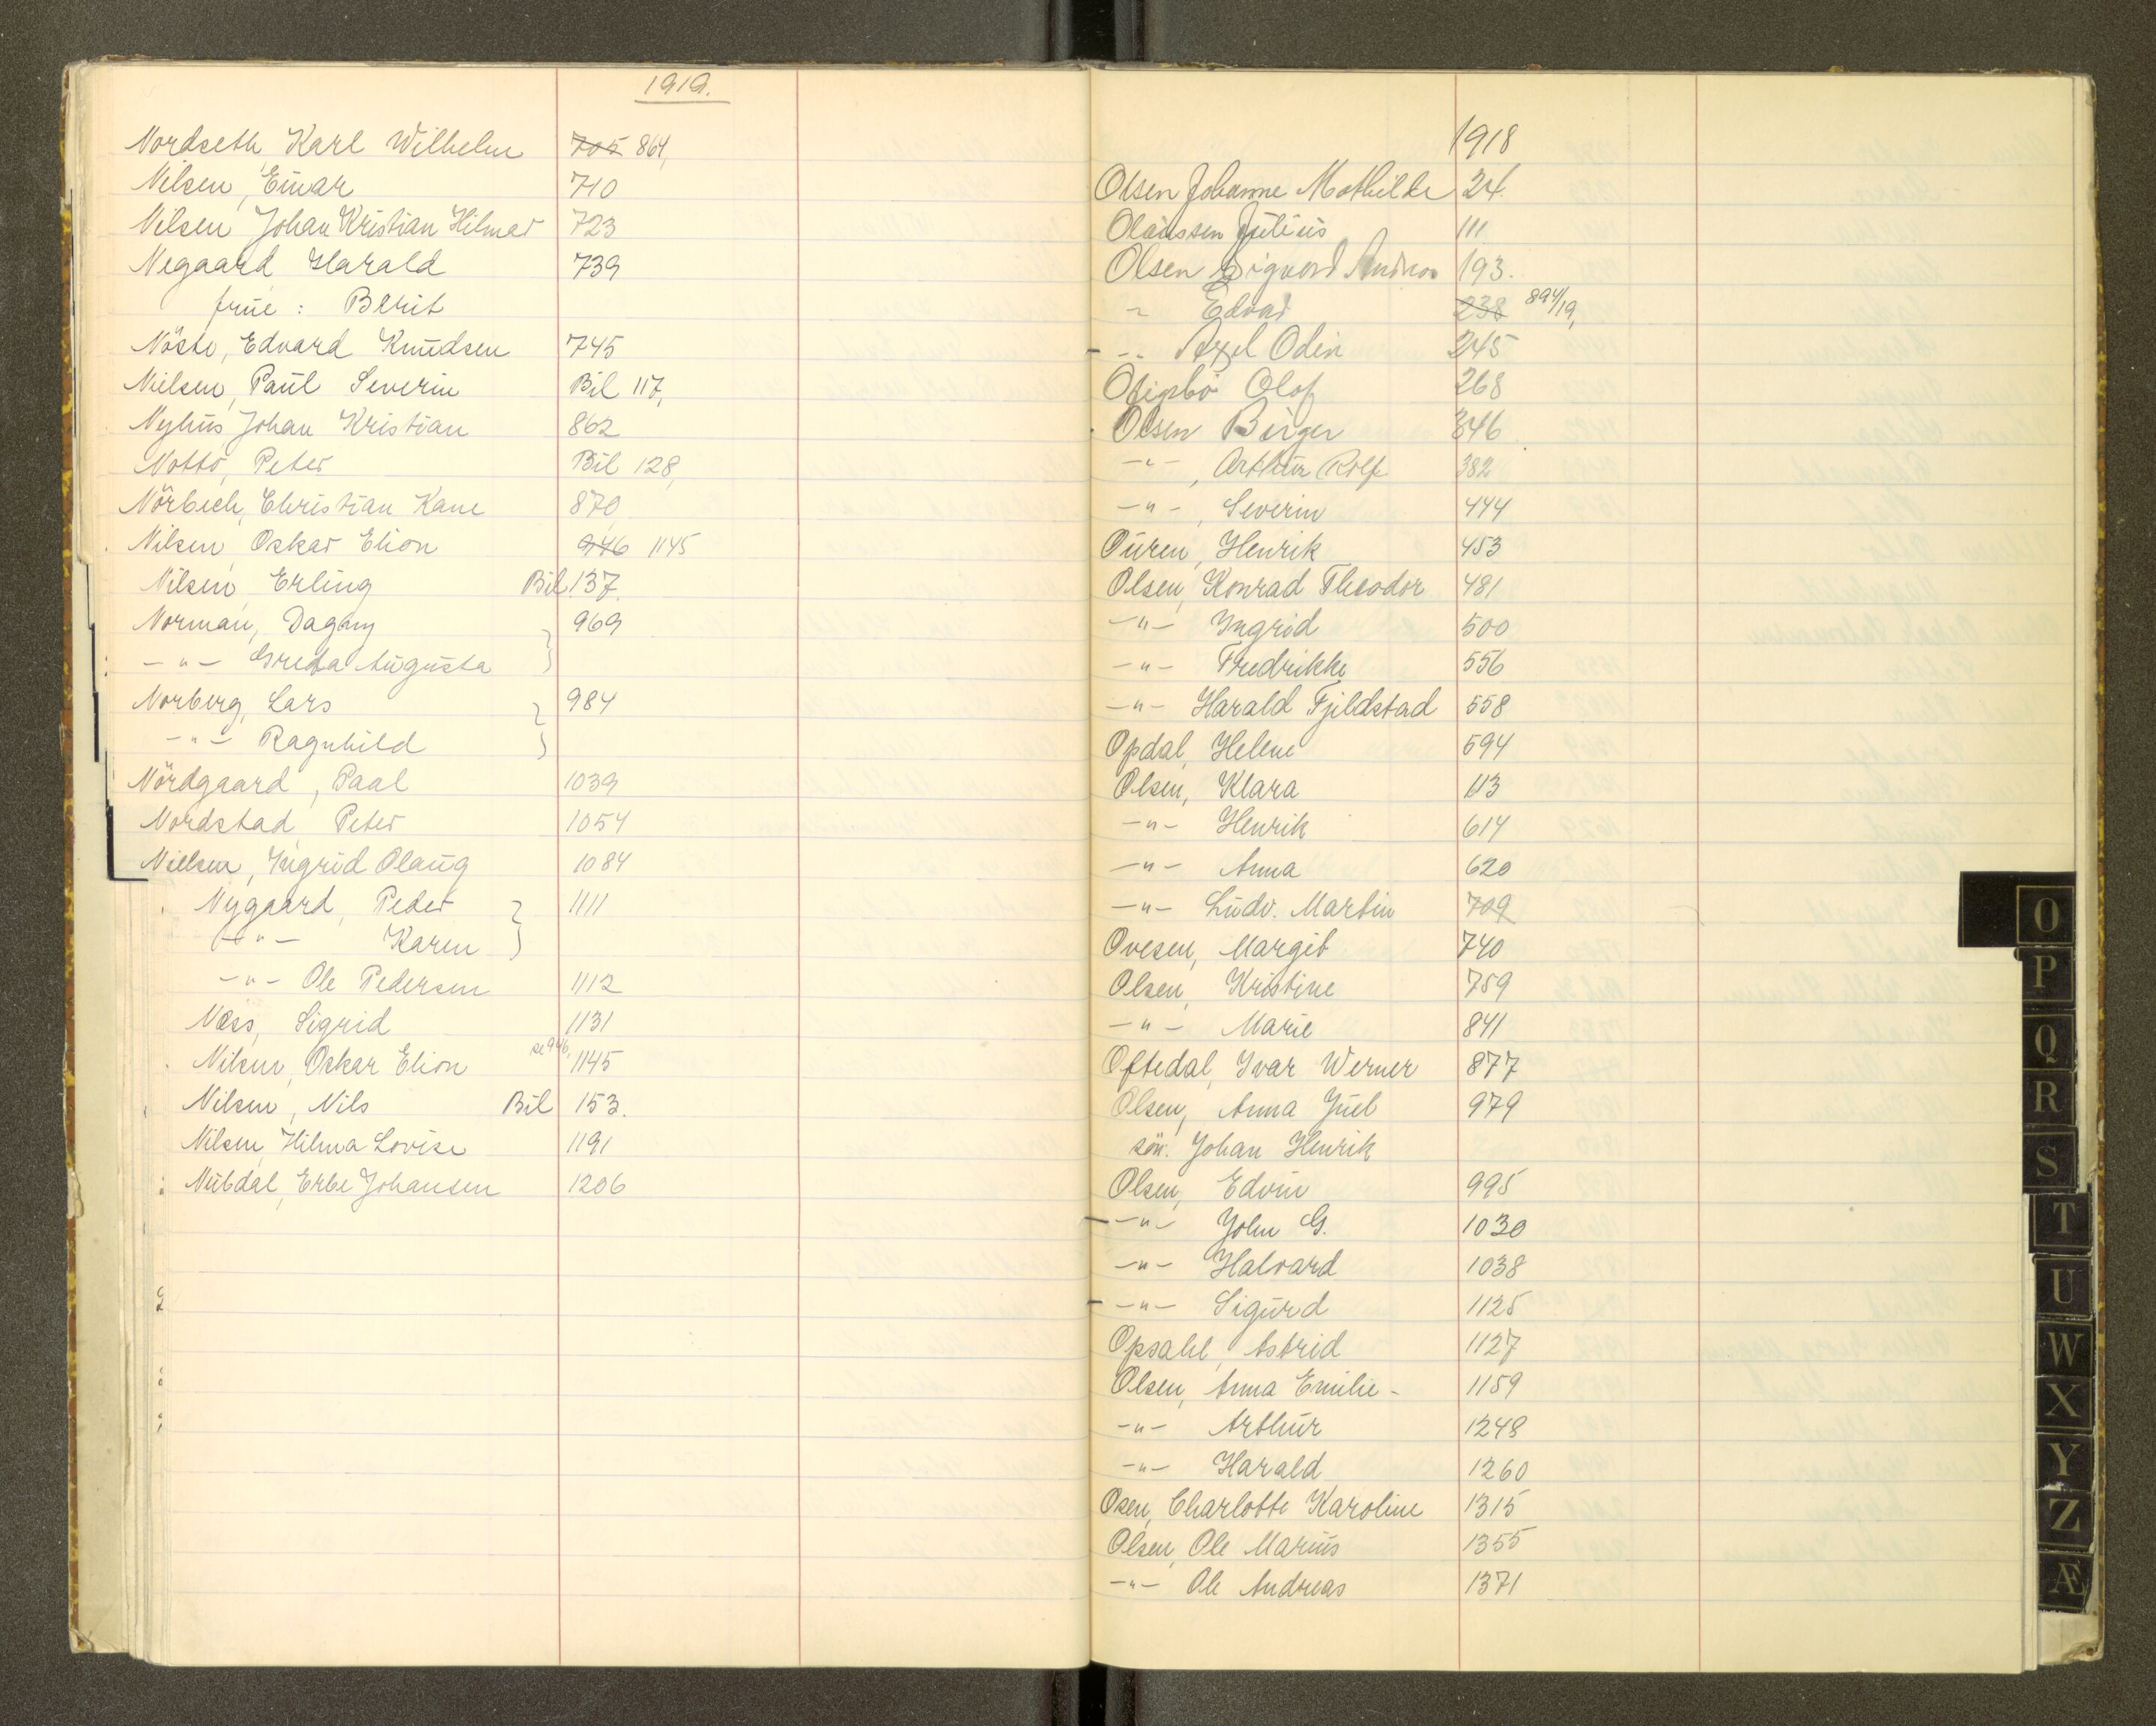 1919.
Nordseth Karl Wilhelm 705 864,
Nilsen, Einar 710
Nilsen Johan Kristian Hilmar 723
Negaard Harald 739
frue : Berit
Nöste, Edvard Knudsen 745
Nielsen, Paul Severin Bil 117,
Nyhus Johan Kristian 862
Nottö, Peter Bil 128,
Nörbech, Christian Kane 870
Nilsen, Oskar Elion 946 1145
Nilsen Erling Bil 137.
Norman, Dagny 969
-"- Greta Augusta
Norberg, Lars 984
-"- Ragnhild
Nördgaard, Paal 1039
Nordstad Peter 1054
Nielsen, Ingrid Olaug 1084
Nygaard, Peder 1111
-"- Karen
-"- Ole Pedersen 1112
Næss, Sigrid 1131
Nilsen, Oskar Elion se 946, 1145
Nilsen, Nils Bil 153.
Nilsen, Hilma Lovise 1191
Nubdal, Erbe Johansen 1206
1918
Olsen Johanne Mathilde 24.
Olaussen Julius 111
Olsen Sigvard Andreas 193.
" Edvar 238 894/19,
-"- Axel Odin 245
Olof 268
Olsen Birger 346
-"-, Arthur Rolf 382
-"-, Severin 444
Ouren, Henrik 453
Olsen, Konrad Theodor 481
-"- Ingrid 500
-"- Fredrikke 556
-"- Harald Fjildstad 558
Opdal, Helene 594
Olsen, Klara 113
-"- Henrik 614
-"- Anna 620
-"- Ludv. Martin 709
Ovesen, Margit 740
Olsen, Kristine 759
-"- Marie 841
Oftedal, Ivar Werner 877
Olsen, Anna Juel 979
sön. Johan Henrik
Olsen, Edvin 995
-"- John G. 1030
-"- Halvard 1038
-"- Sigurd 1125
Opsahl, Astrid 1127
Olsen, Anna Emilie - 1159
-"- Arthur 1248
-"- Harald 1260
Osen, Charlotte Karoline 1315
Olsen, Ole Marius 1355
-"- Ole Andreas 1371
O
P
Q
R
S
T
U
W
X
Y
Z
Æ